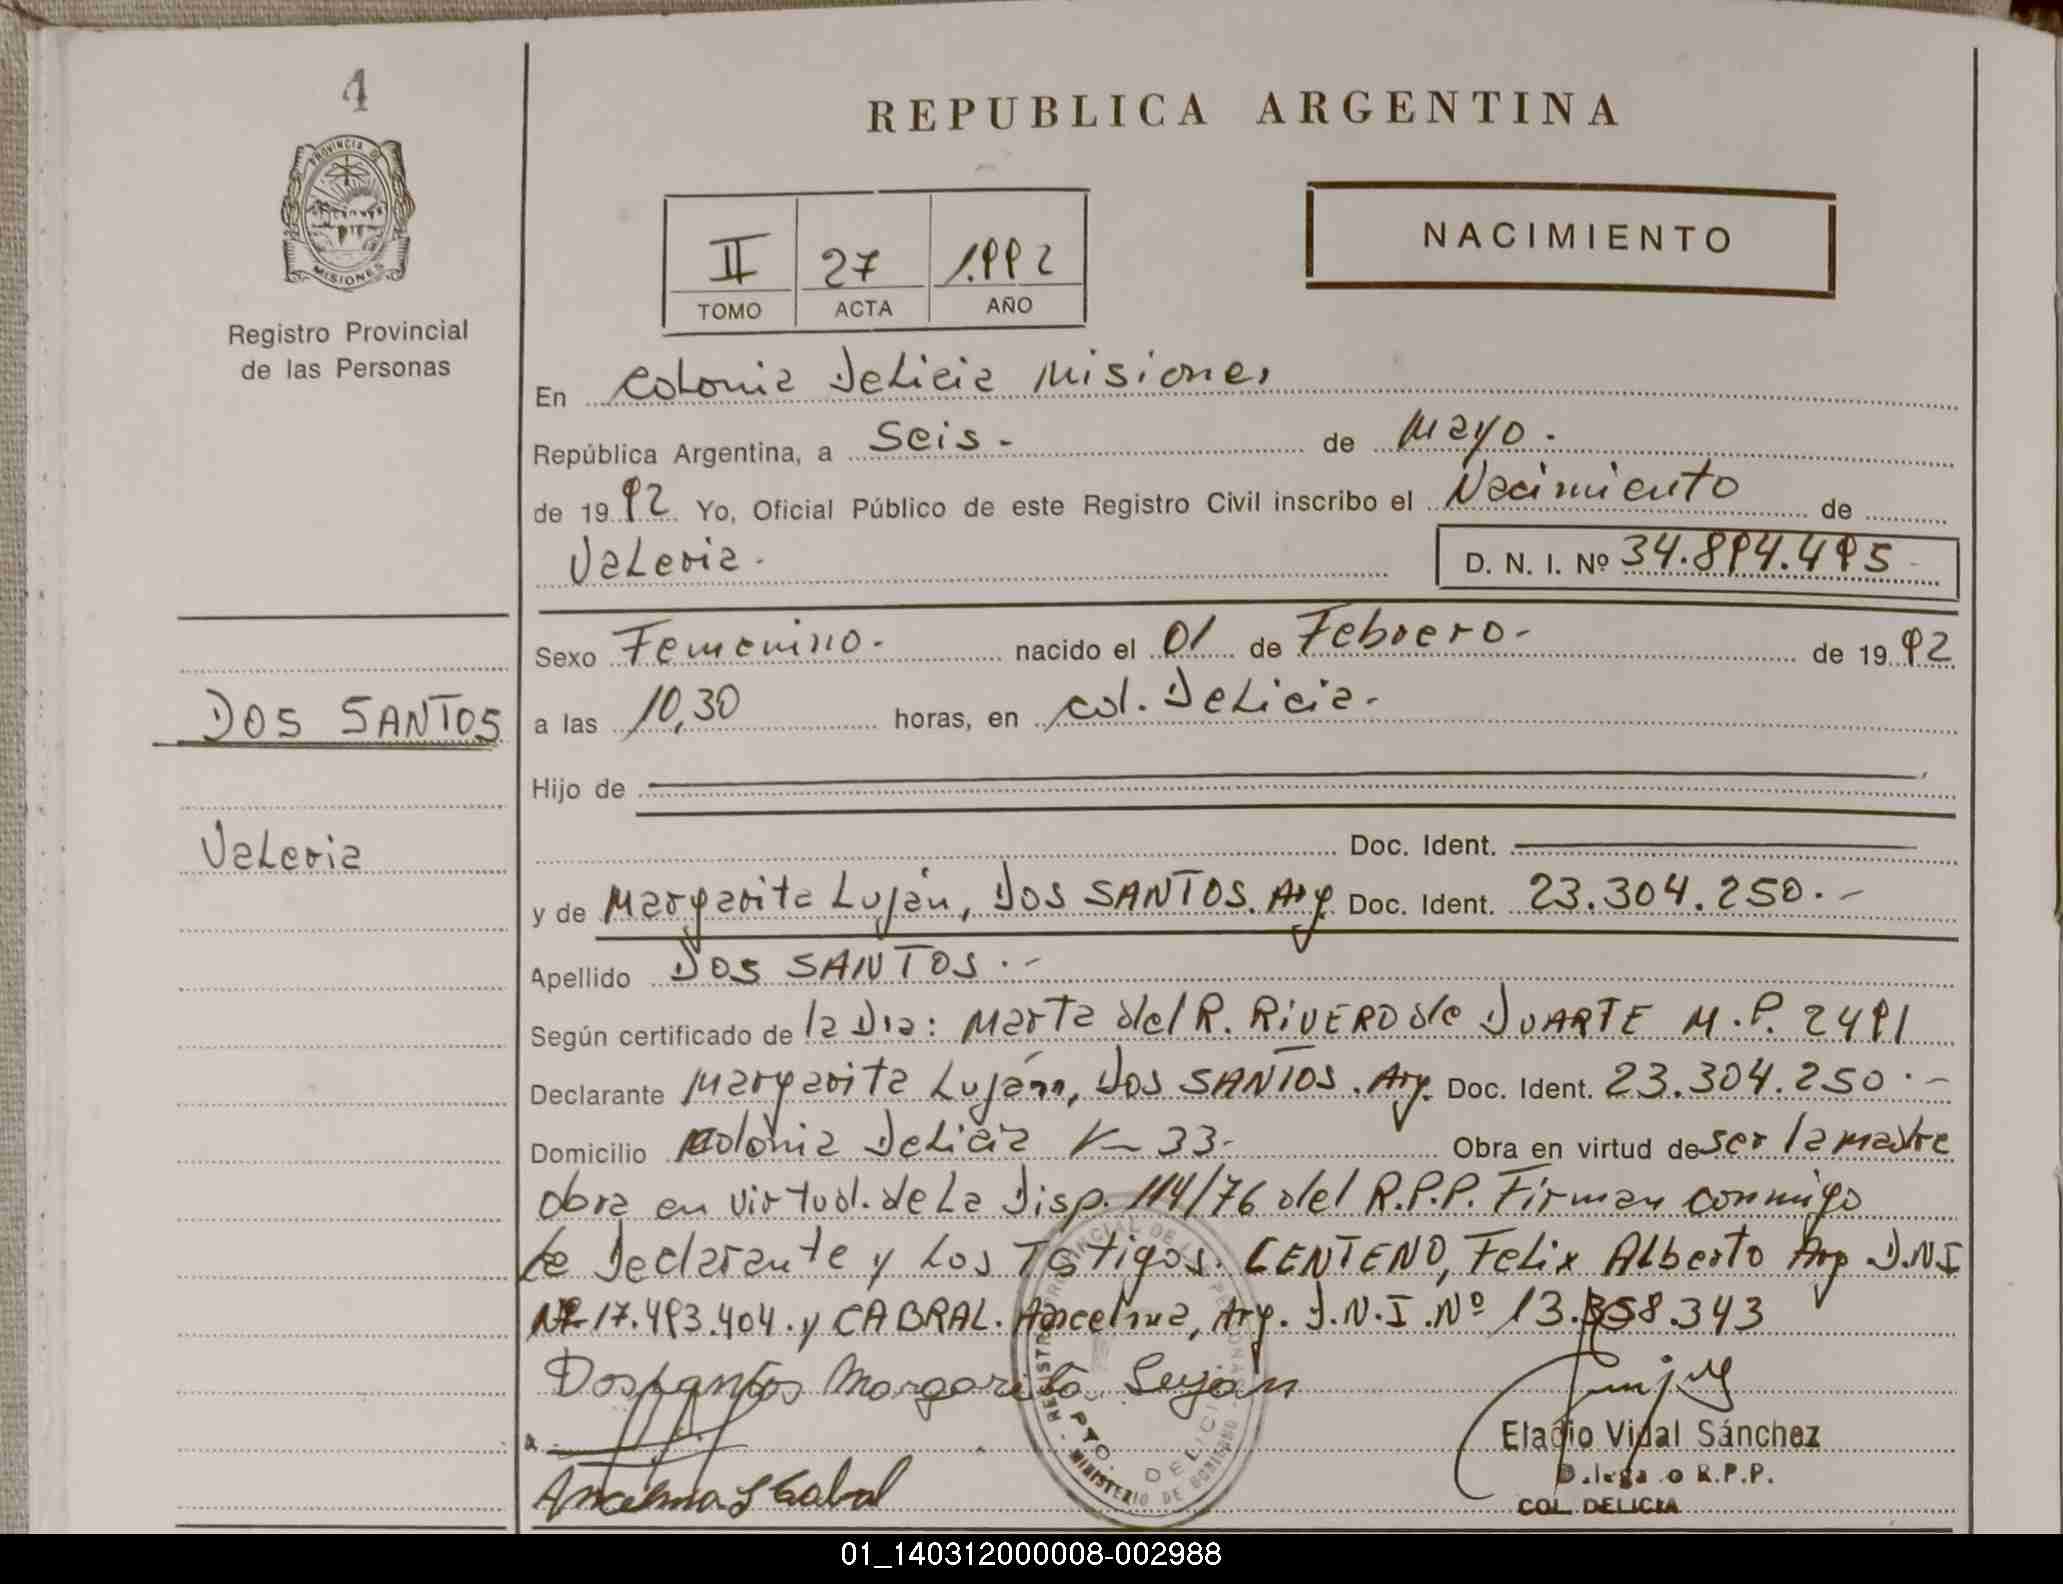 4
PROVINCIA DE
MISIONES
Registro Provincial
de las Personas
REPUBLICA ARGENTINA
II 27 1.992
TOMO ACTA AÑO
NACIMIENTO
En Colonia Delicia Misiones
República Argentina, a Seis.- de Mayo.
de 1992 Yo, Oficial Público de este Registro Civil inscribo el Nacimiento de
Valeria.
D. N. I. Nº 34.894.495-
DOS SANTOS
Valeria
Sexo Femenino.- nacido el 01 de Febrero.- de 1992
a las 10,30 horas, en col. Delicia.-
Hijo de
Doc. Ident.
y de Margarita Luján, DOS SANTOS. Arg. Doc. Ident. 23.304.250.-
Apellido DOS SANTOS.-
Según certificado de la Dra: Marta del R. RIVERO de DUARTE M.P. 2491
Declarante Margarita Luján, DOS SANTOS. Arg. Doc. Ident. 23.304.250.-
Domicilio Colonia Delicia K 33.- Obra en virtud de ser la madre
obra en virtud. de La Disp. 114/76 del R.P.P. Firman conmigo
La Declarante y Los Testigos. CENTENO, Felix Alberto Arg D.N.I
Nº 17.493.404. y CABRAL. Ancelma, Arg. D.N.I. Nº 13.358.343
Dos santos Margarita Lujan
Ancelma Cabral
REGISTRO PROVINCIAL DE LAS PERSONAS
PTO. DELICIA
MINISTERIO DE GOBIERNO
Eladio Vidal Sánchez
Delegado R.P.P.
COL. DELICIA
01_140312000008-002988